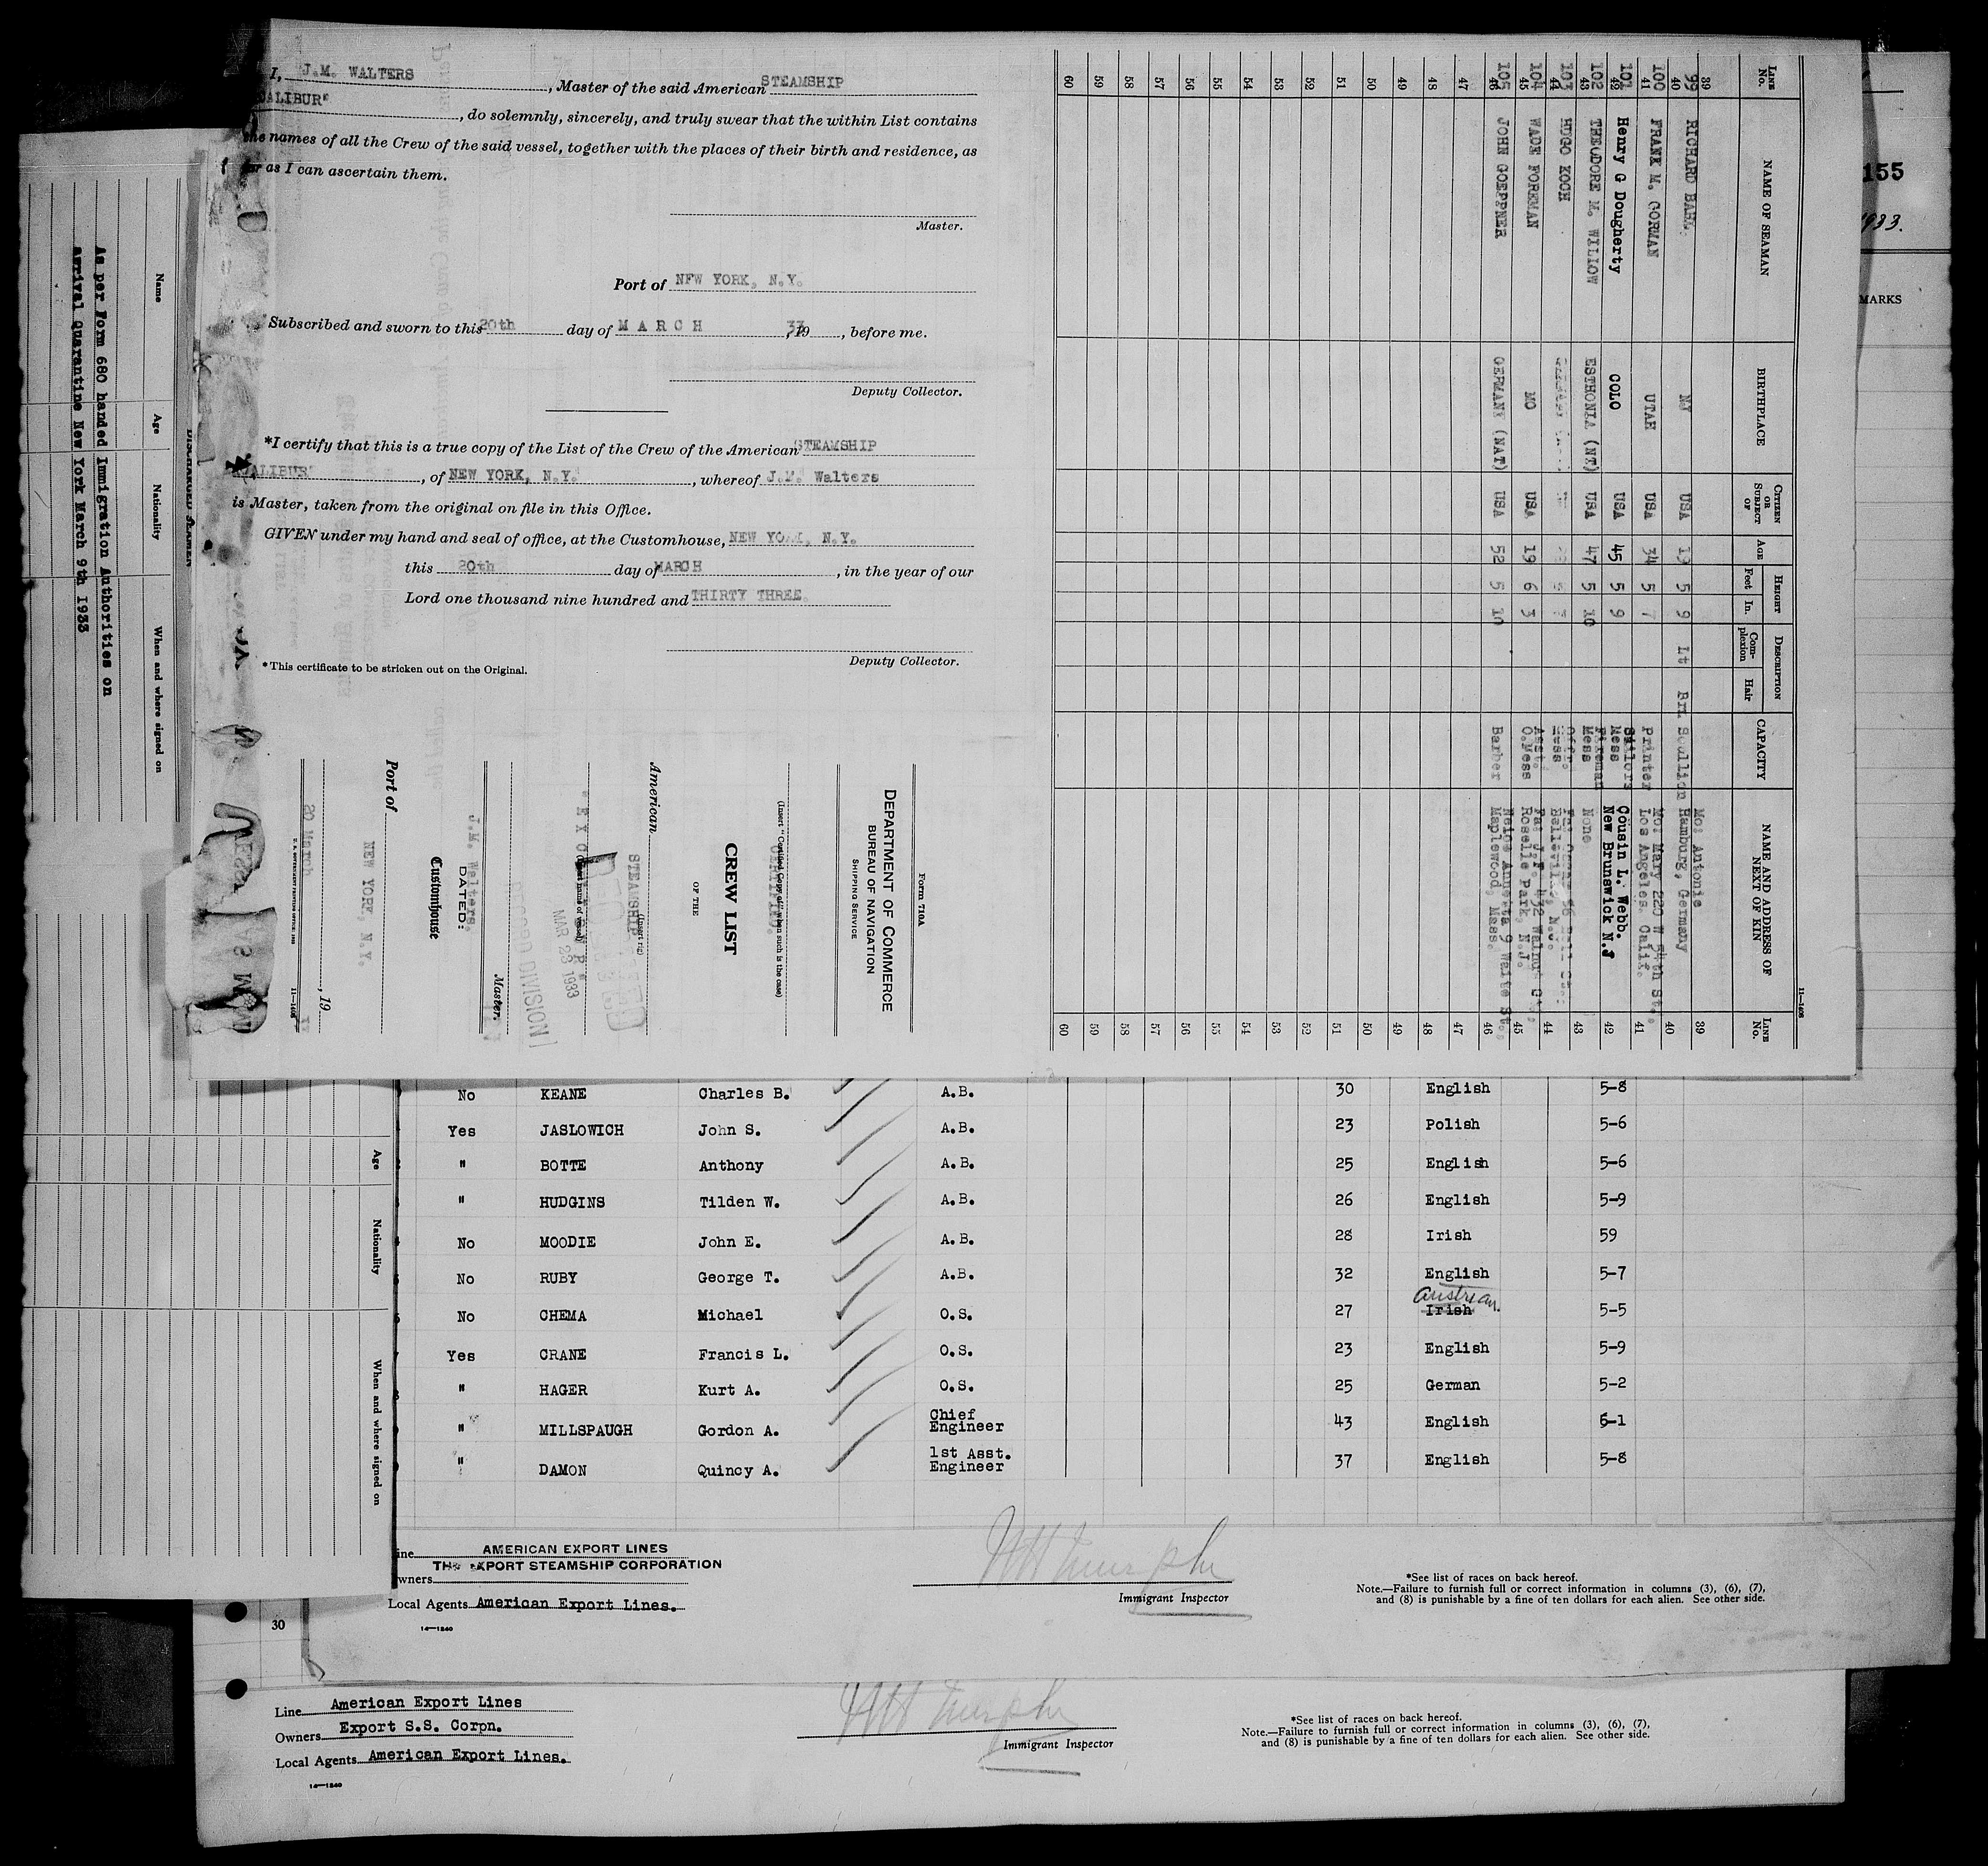 I, J.M. WALTERS, Master of the said American STEAMSHIP
CALIBUR", do solemnly, sincerely, and truly swear that the within List contains
the names of all the Crew of the said vessel, together with the places of their birth and residence, as
far as I can ascertain them.
Master.
Port of NEW YORK, N.Y.
Subscribed and sworn to this 20th day of MARCH, 19 33, before me.
Deputy Collector.
*I certify that this is a true copy of the List of the Crew of the American STEAMSHIP
CALIBUR", of NEW YORK, N.Y., whereof J.M. Walters
is Master, taken from the original on file in this Office.
GIVEN under my hand and seal of office, at the Customhouse, NEW YORK, N.Y.
this 20th day of MARCH, in the year of our
Lord one thousand nine hundred and THIRTY THREE.
Deputy Collector.
*This certificate to be stricken out on the Original.
Form 710A
DEPARTMENT OF COMMERCE
BUREAU OF NAVIGATION
SHIPPING SERVICE
CERTIFIED.
(Insert "Certified Copy of" when such is the case)
CREW LIST
OF THE
American STEAMSHIP
(Insert rig)
(Insert name of vessel)
RECORD DIVISION
MAR 23 1933
Master.
J.M. Walters.
DATED:
Customhouse
Port of NEW YORK, N.Y.
20 March, 19
11—1408
LINE No. NAME OF SEAMAN BIRTHPLACE CITIZEN OR SUBJECT OF AGE HEIGHT Feet In. DESCRIPTION Complexion Hair CAPACITY NAME AND ADDRESS OF NEXT OF KIN LINE No.
11—1408
39 Mo: Antonie 39
99 40 RICHARD BAHL. NJ USA 19 5 9 Lt Brn Scullion Hamburg, Germany 40
100 41 FRANK M. GORMAN UTAH USA 34 5 7 Printer Mo: Mary 220 W 54th St., Los Angeles. Calif. 41
101 42 Henry G Dougherty COLO USA 45 5 9 Sailors Mess Cousin L. Webb. New Brunswick N.J 42
102 43 THEODORE M. WILLOW ESTHONIA (NT) USA 47 5 10 Fireman Mess None 43
103 44 HUGO KOCH Offr. Mess Belleville, N.J. 44
104 45 WADE FOREMAN MO USA 19 6 3 Asst. O.Mess Fa: J.F. 432 Walnut St., Roselle Park, N.J. 45
105 46 JOHN GOEPPNER GERMANY (NAT) USA 52 5 10 Barber Neice Annetta 9 Waite St., Maplewood, Mass. 46
47 47
48 48
49 49
50 50
51 51
52 52
53 53
54 54
55 55
56 56
57 57
58 58
59 59
60 60
155
1933.
MARKS
DISCHARGED SEAMEN
Name Age Nationality When and where signed on
As per Form 680 handed Immigration Authorities on
arrival Quarantine New York March 9th 1933
Age Nationality When and where signed on
No KEANE Charles B. A.B. 30 English 5-8
Yes JASLOWICH John S. A.B. 23 Polish 5-6
" BOTTE Anthony A.B. 25 English 5-6
" HUDGINS Tilden W. A.B. 26 English 5-9
No MOODIE John E. A.B. 28 Irish 59
No RUBY George T. A.B. 32 English 5-7
Austrian.
No CHEMA Michael O.S. 27 Irish 5-5
Yes CRANE Francis L. O.S. 23 English 5-9
" HAGER Kurt A. O.S. 25 German 5-2
" MILLSPAUGH Gordon A. Chief Engineer 43 English 6-1
" DAMON Quincy A. 1st Asst. Engineer 37 English 5-8
ine AMERICAN EXPORT LINES
THE EXPORT STEAMSHIP CORPORATION
wners
Local Agents American Export Lines.
14—1240
Immigrant Inspector
*See list of races on back hereof.
Note.—Failure to furnish full or correct information in columns (3), (6), (7),
and (8) is punishable by a fine of ten dollars for each alien. See other side.
30
Line American Export Lines
Owners Export S.S. Corpn.
Local Agents American Export Lines.
14—1240
Immigrant Inspector
*See list of races on back hereof.
Note.—Failure to furnish full or correct information in columns (3), (6), (7),
and (8) is punishable by a fine of ten dollars for each alien. See other side.